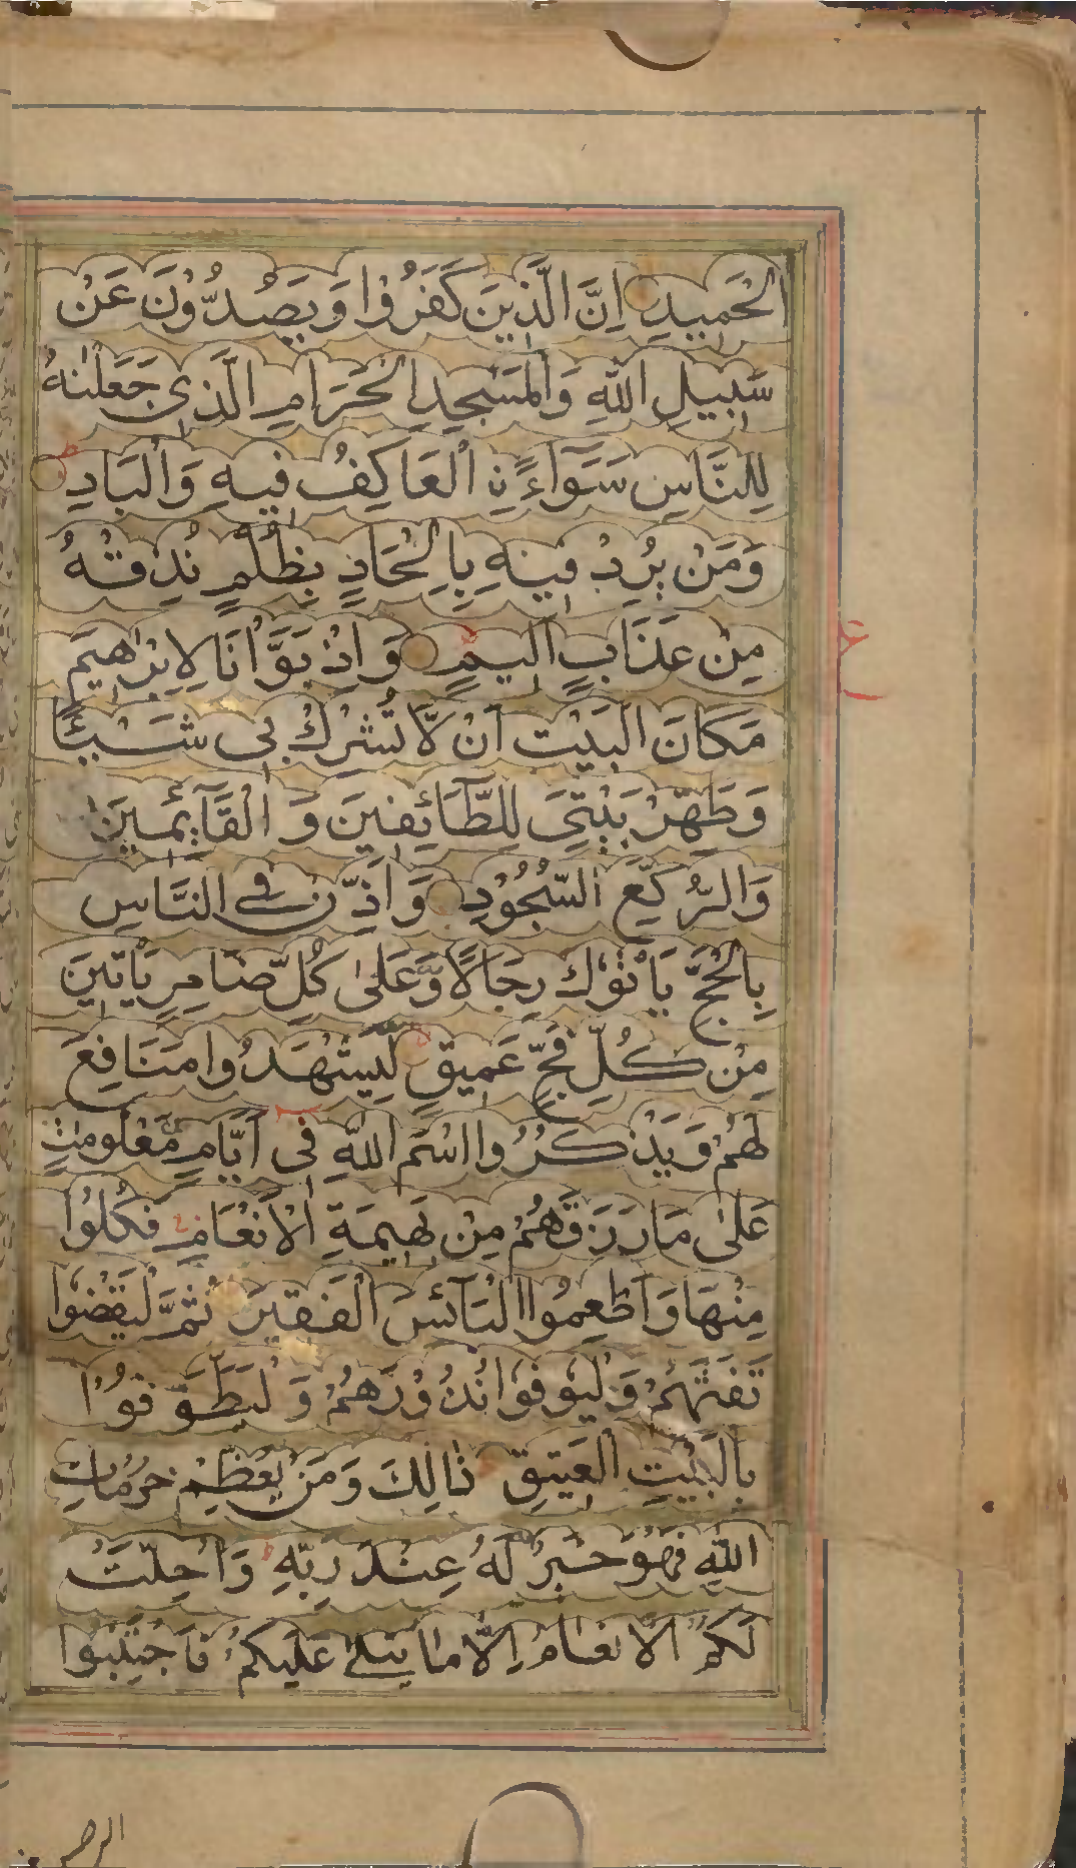 الْحَمِيدِ اِنَّ الَّذِينَ كَفَرُوْا وَيَصُدُّوْنَ عَنْ
سَبِيلِ اللّٰهِ وَالْمَسْجِدِ الْحَرَامِ الَّذِي جَعَلْنٰهُ
لِلنَّاسِ سَوَآءًنِ الْعَاكِفُ فِيهِ وَالْبَادِ
وَمَنْ يُرِدْ فِيهِ بِاِلْحَادٍ بِظُلْمٍ نُذِقْهُ
مِنْ عَذَابٍ اَلِيمٍ وَاِذْ بَوَّاْنَا لِاِبْرٰهِيمَ
مَكَانَ الْبَيْتِ اَنْ لَّا تُشْرِكْ بِي شَيْئًا
وَطَهِّرْ بَيْتِيَ لِلطَّآئِفِينَ وَالْقَآئِمِينَ
وَالرُّكَّعِ السُّجُوْدِ وَاَذِّنْ فِي النَّاسِ
بِالْحَجِّ يَاْتُوْكَ رِجَالًا وَّعَلٰى كُلِّ ضَامِرٍ يَاْتِينَ
مِنْ كُلِّ فَجٍّ عَمِيقٍ لِّيَشْهَدُوا مَنَافِعَ
لَهُمْ وَيَذْكُرُوا اسْمَ اللّٰهِ فِي اَيَّامٍ مَّعْلُومٰتٍ
عَلٰى مَا رَزَقَهُمْ مِنْ بَهِيمَةِ الْاَنْعَامِ فَكُلُوْا
مِنْهَا وَاَطْعِمُوا الْبَآئِسَ الْفَقِيرَ ثُمَّ لْيَقْضُوْا
تَفَثَهُمْ وَلْيُوفُوْا نُذُوْرَهُمْ وَلْيَطَّوَّفُوْا
بِالْبَيْتِ الْعَتِيقِ ذٰالِكَ وَمَنْ يُعَظِّمْ حُرُمَاتِ
اللّٰهِ فَهُوَ خَيْرٌ لَّهُ عِنْدَ رَبِّهِ وَاُحِلَّتْ
لَكُمُ الْاَنْعَامُ اِلَّا مَا يُتْلٰى عَلَيْكُمْ فَاجْتَنِبُوا